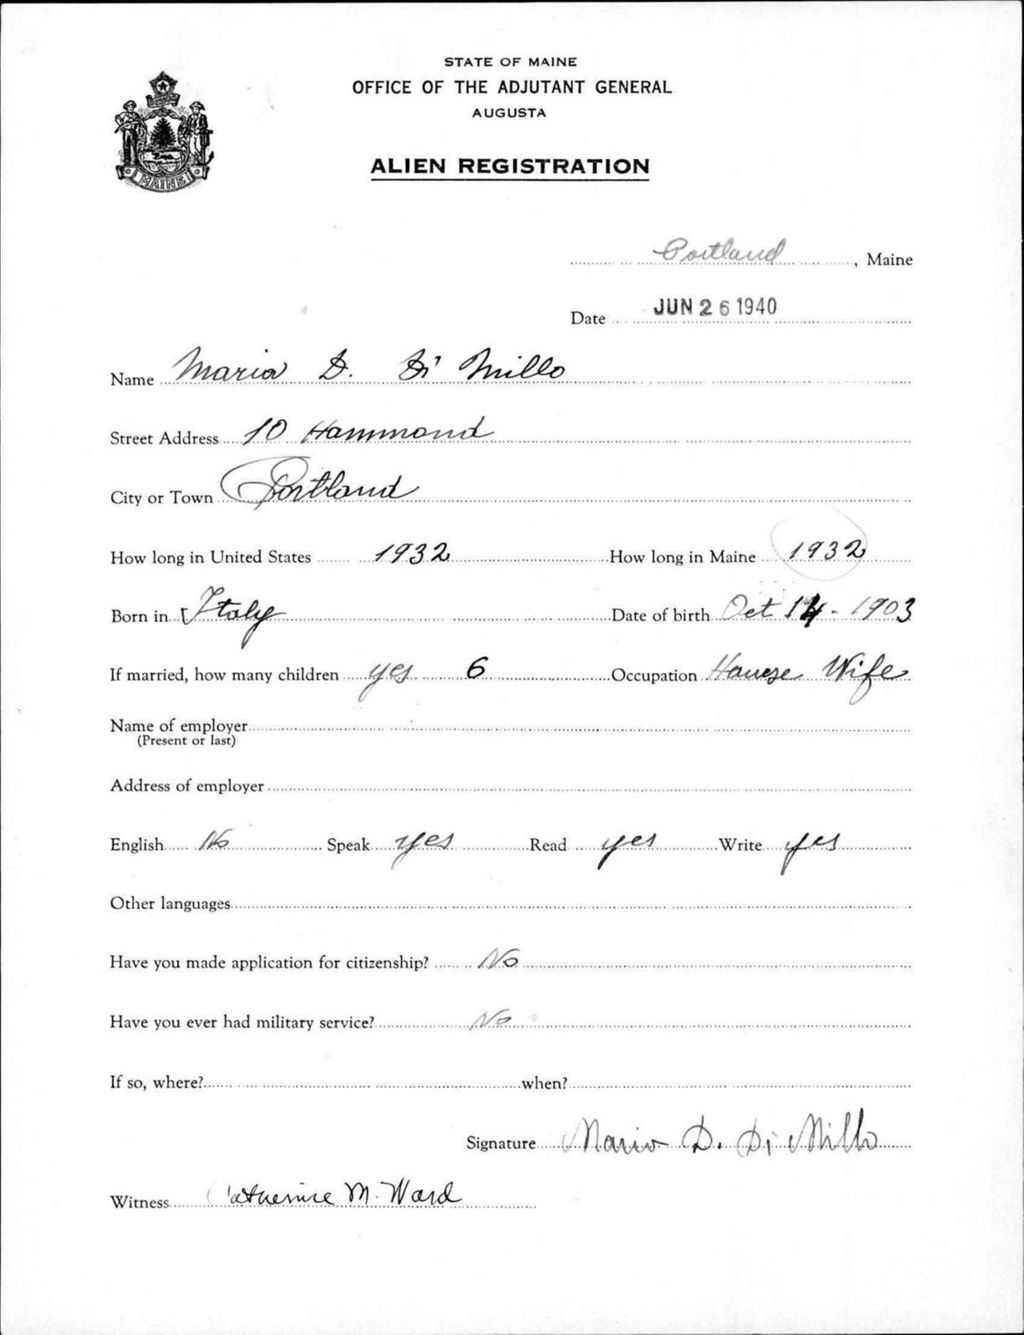 STATE OF MAINE
OFFICE OF THE ADJUTANT GENERAL
AUGUSTA
MAINE
ALIEN REGISTRATION
Portland, Maine
Date JUN 26 1940
Name Maria D. Di Millo
Street Address 10 Hammond
City or Town Portland
How long in United States 1932 How long in Maine 1932
Born in Italy Date of birth Oct 14 - 1903
If married, how many children yes 6 Occupation House Wife
Name of employer
(Present or last)
Address of employer
English No Speak yes Read yes Write yes
Other languages
Have you made application for citizenship? No
Have you ever had military service? No
If so, where? when?
Signature Maria D. Di Millo
Witness Catherine M. Ward